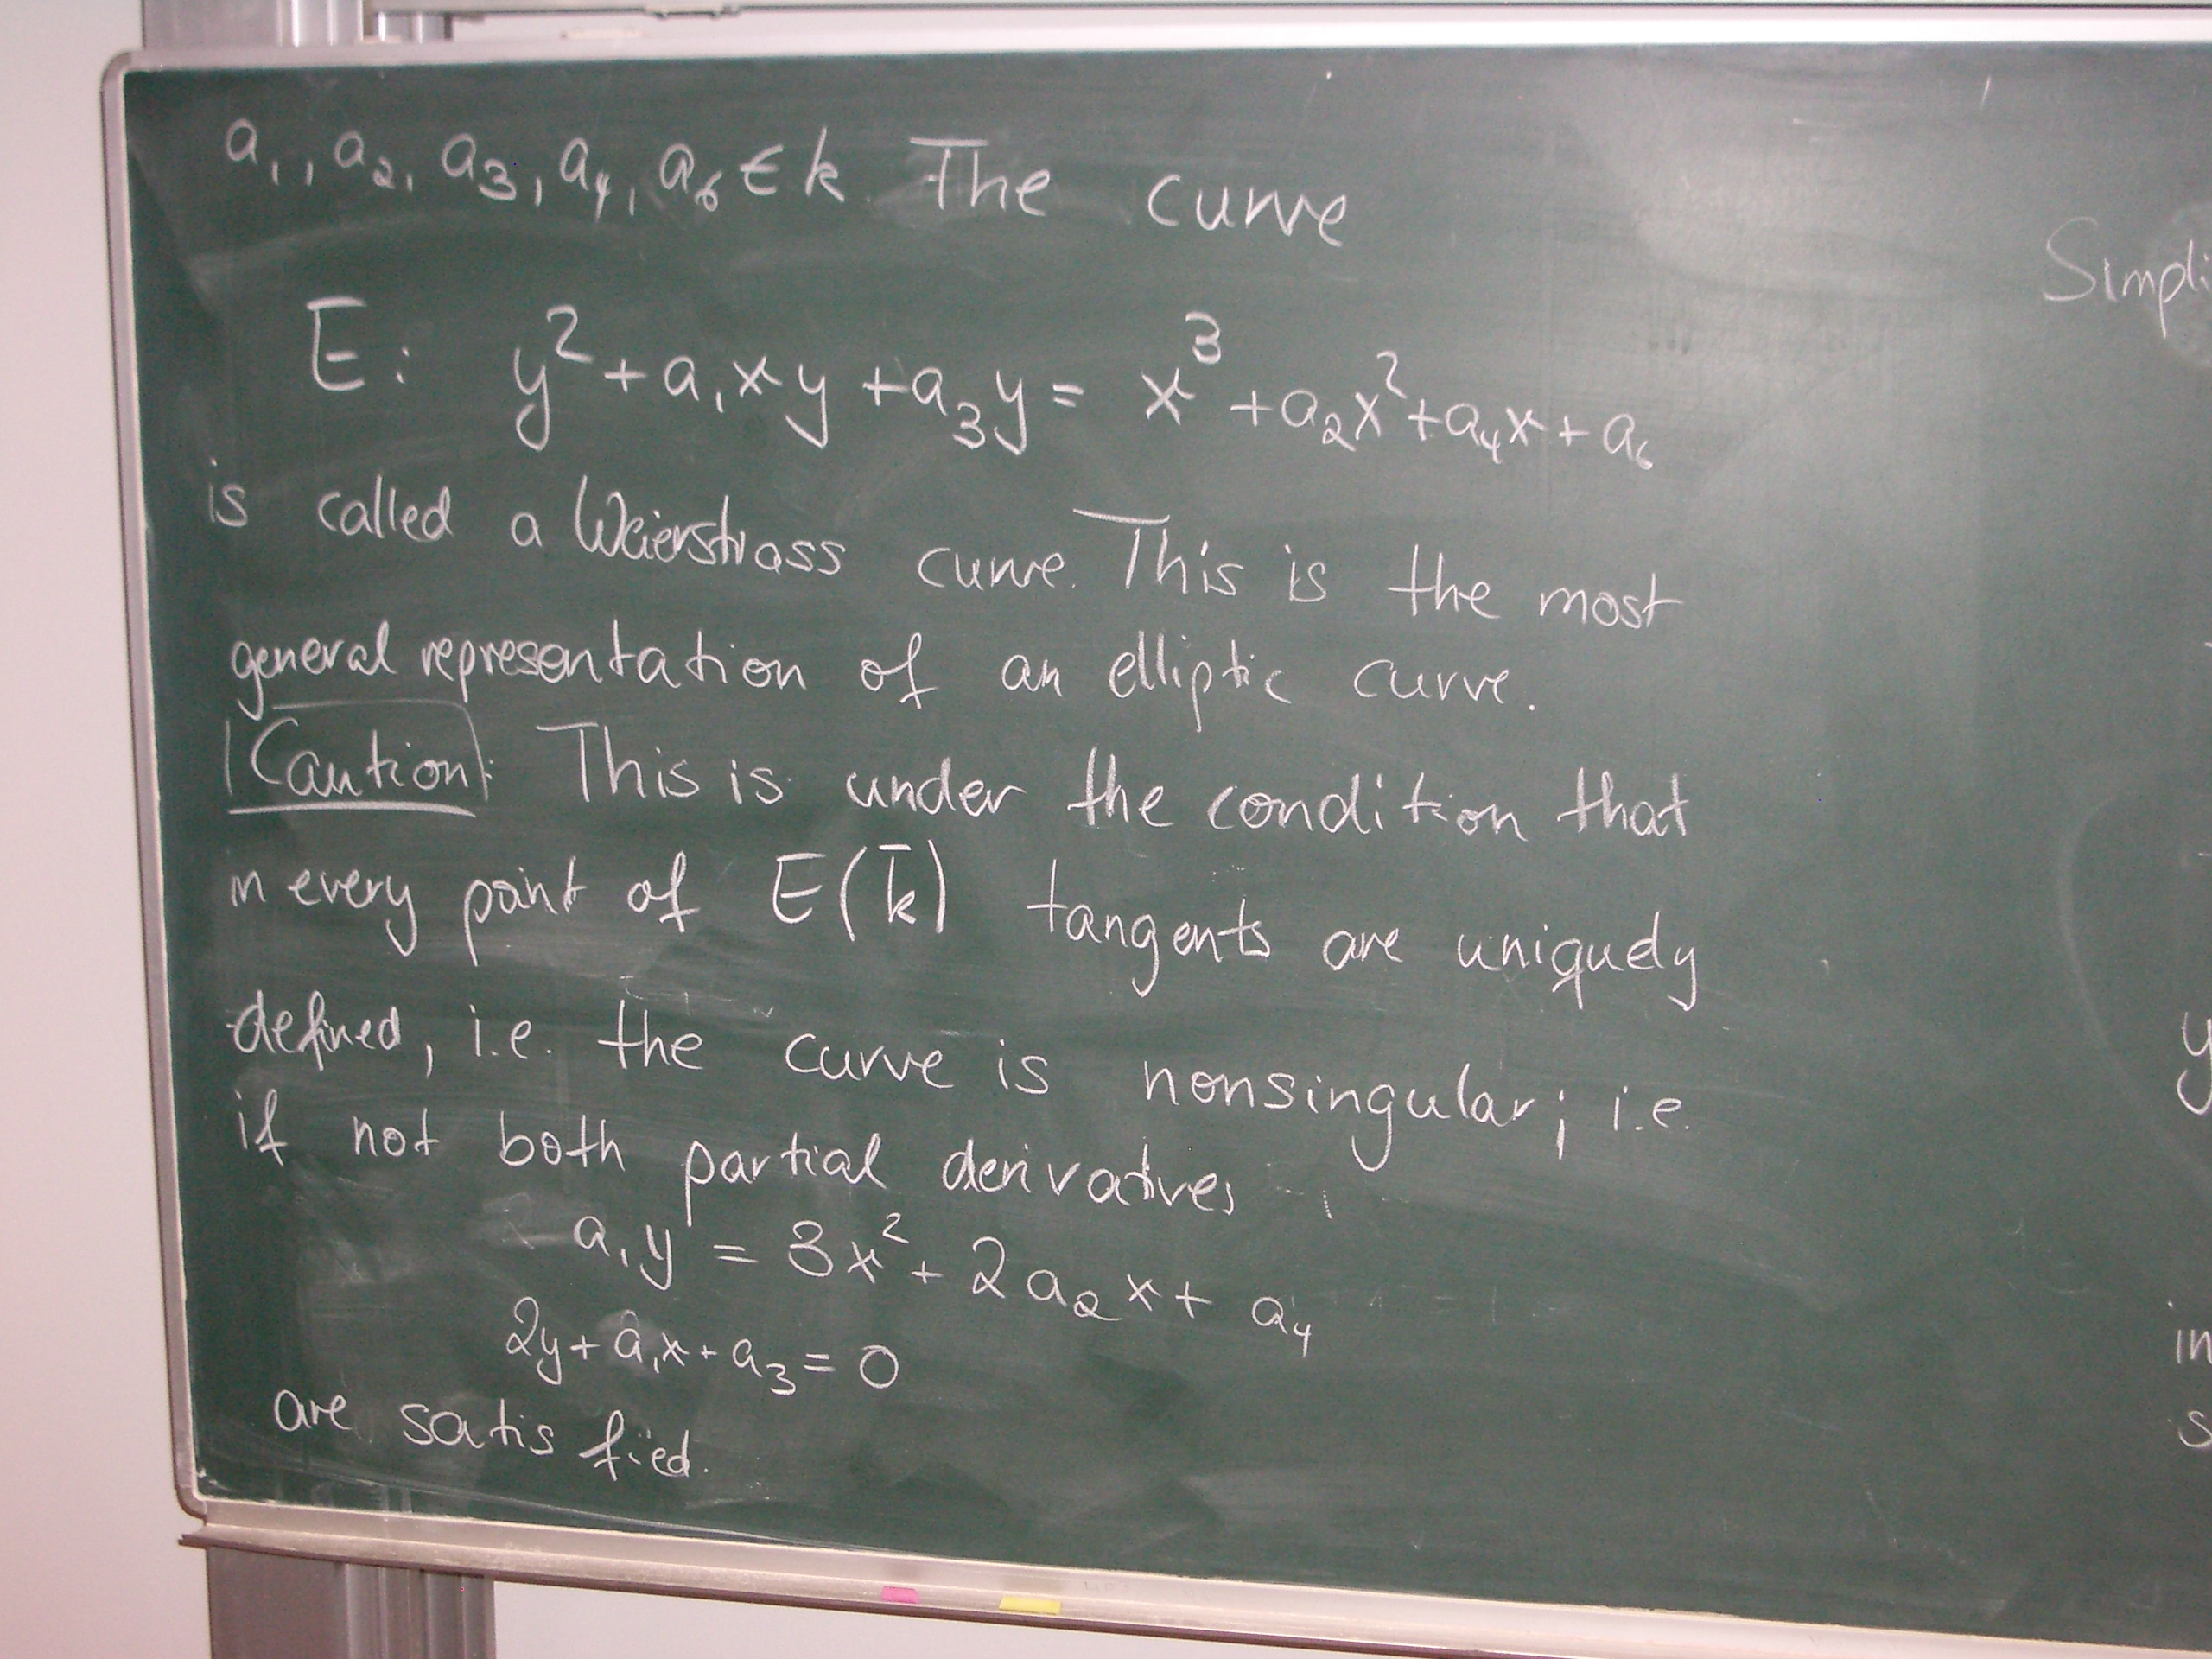 a₁, a₂, a₃, a₄, a₆ ∈ k. The curve
E: y² + a₁xy + a₃y = x³ + a₂x² + a₄x + a₆
is called a Weierstrass curve. This is the most
general representation of an elliptic curve.
Caution: This is under the condition that
in every point of E(k̄) tangents are uniquely
defined, i.e. the curve is nonsingular; i.e.
if not both partial derivatives
a₁y = 3x² + 2a₂x + a₄
2y + a₁x + a₃ = 0
are satisfied.
Simpli
y
in
s